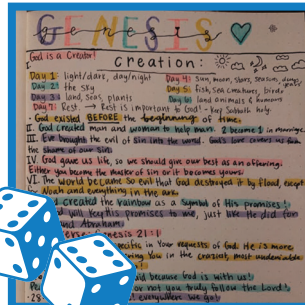 GENESIS
genesis
God is a Creator!
I.
creation:
Day 1: light/dark, day/night
Day 4: sun, moon, stars, seasons, days,
Day 2: the sky
Day 5: fish, sea creatures, birds
Day 3: land, seas, plants
Day 6: land animals & humans
Day 7: Rest. → Rest is important to God! - Keep Sabbath holy.
God existed BEFORE the beginning of time.
II. God created man and woman to help man. 2 become 1 in marriage
III. Eve brought the evil of sin into the world. God's love covers us from
the shame of our sins.
IV. God gave us life, so we should give our best as an offering.
Either you become the master of sin or it becomes yours.
VI. The world became so evil that God destroyed it by flood, except
Noah and everything in the ark.
created the rainbow as a symbol of His promises!
will keep His promises to me, just like He did for
and Abraham
21:1
specific in your requests of God. He is more
you in the craziest, most undeniable
because God is with us!
or not you truly follow the Lord!
28 everywhere we go!